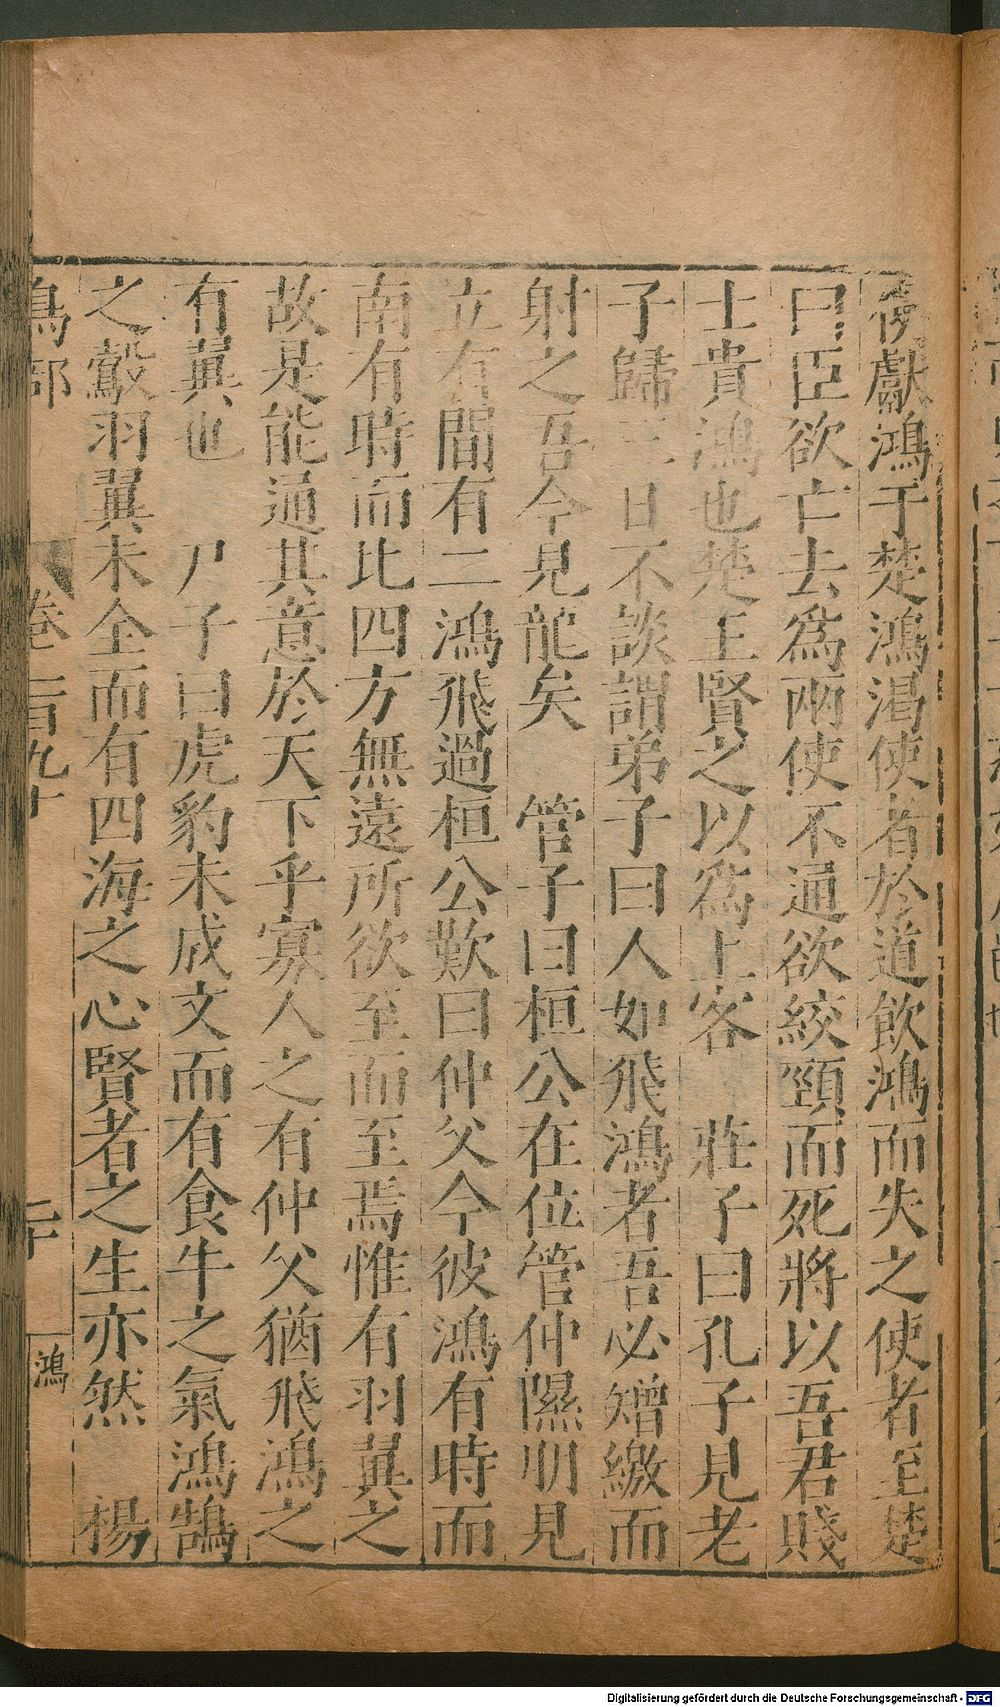 獻鴻于楚鴻渴使者於道飲鴻而失之使者至楚
曰臣欲亡去爲兩使不通欲絞頸而死將以吾君賤
士貴鴻也楚王賢之以爲上客　莊子曰孔子見老
子歸三日不談謂弟子曰人如飛鴻者吾必矰繳而
射之吾今見龍矣　管子曰桓公在位管仲隰朋見
立有間有二鴻飛過桓公歎曰仲父今彼鴻有時而
南有時而北四方無遠所欲至而至焉惟有羽翼之
故是能通其意於天下乎寡人之有仲父猶飛鴻之
有翼也　尸子曰虎豹未成文而有食牛之氣鴻鵠
之鷇羽翼未全而有四海之心賢者之生亦然　楊
鳥部　卷一百九十　二十　鴻
Digitalisierung gefördert durch die Deutsche Forschungsgemeinschaft - DFG